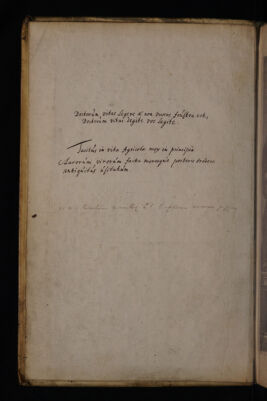 Doctorum vitas legere et non vivere frustra est,
Doctorum vitas legite vos legite.
Tacitus in vita Agricolæ mox in principio
Clarorum virorum facta moresque posteris tradere
antiquitus usitatum